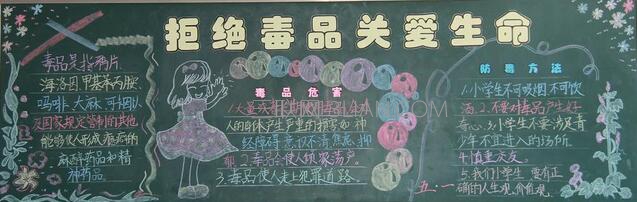 拒绝毒品关爱生命
毒品是指鸦片、
海洛因、甲基苯丙胺、
吗啡、大麻、可栶认
及国家规定管制的其他
能够使人形成瘾癖的
麻醉药品和精
神药品
毒品危害
1.大量或长期
人的身体产生严重的损害如神
经障碍
2.毒品会使人倾家荡产
3.毒品使人走上犯罪道路。
防毒方法
1.小学生不可吸烟不可饮
酒.2.不要对毒品产生好
奇心.3.小学生不要涉足青
少年不宜进入的场所.
4.慎重交友。
5.我们小学生要有正
确的人生观,价值观.
五.一